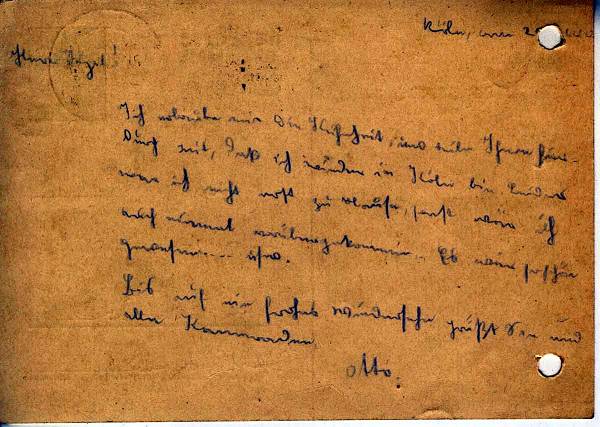 Köln, den
Ich erlaube mir die Freiheit, und teile Ihnen hier-
durch mit, daß ich wieder in Köln bin. Leider
war ich nicht erst zu Hause, sonst wäre ich
auch einmal vorübergekommen. Es wäre so schön
gewesen.... usw.
Bis auf ein frohes Wiedersehn grüßt Sie und
alle Kameraden
Otto.